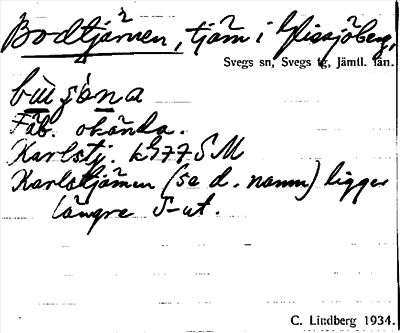 Bodtjärnen, tjärn i Glissjöberg,
Svegs sn, Svegs tg, Jämtl. län.
Fäb. okända.
Karlstj. kG77SM
Karlstjärnen (se d. namn) ligger
längre S-ut.
C. Lindberg 1934.